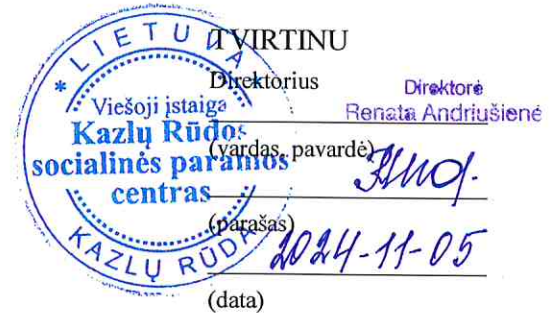 TVIRTINU
Direktorius
Direktorė
Renata Andriušienė
(vardas, pavardė)
(parašas)
2024-11-05
(data)
LIETUVA
Viešoji įstaiga
Kazlų Rūdos
socialinės paramos
centras
KAZLŲ RŪDA